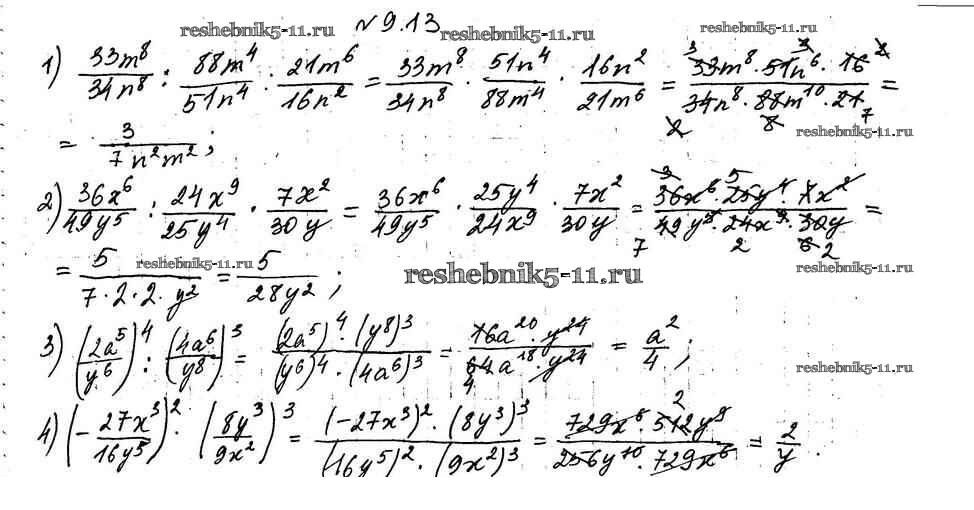 reshebnik5-11.ru № 9.13 reshebnik5-11.ru reshebnik5-11.ru
1) 33m⁸/34n⁸ : 88m⁴/51n⁴ · 21m⁶/16n² = 33m⁸/34n⁸ · 51n⁴/88m⁴ · 16n²/21m⁶ = 33m⁸ · 51n⁶ · 16/34n⁸ · 88m¹⁰ · 21 =
3 3 2
2 8 7
= 3/7n²m² ; reshebnik5-11.ru
2) 36x⁶/49y⁵ : 24x⁹/25y⁴ · 7x²/30y = 36x⁶/49y⁵ · 25y⁴/24x⁹ · 7x²/30y = 36x⁶ · 25y⁴ · 7x²/49y⁵ · 24x⁹ · 30y =
3 5
7 2 6 2
= 5/7·2·2·y² = 5/28y² ; reshebnik5-11.ru reshebnik5-11.ru reshebnik5-11.ru
3) (2a⁵/y⁶)⁴ : (4a⁶/y⁸)³ = (2a⁵)⁴ · (y⁸)³/(y⁶)⁴ · (4a⁶)³ = 16a²⁰ · y²⁴/64a¹⁸ · y²⁴ = a²/4 ;
4
reshebnik5-11.ru
4) (- 27x³/16y⁵)² · (8y³/9x²)³ = (-27x³)² · (8y³)³/(16y⁵)² · (9x²)³ = 729x⁶ · 512y⁹/256y¹⁰ · 729x⁶ = 2/y .
2
reshebnik5-11.ru